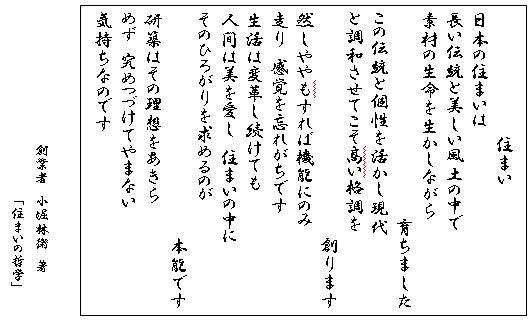 住まい
日本の住まいは
長い伝統と美しい風土の中で
素材の生命を生かしながら
育ちました
この伝統と個性を活かし現代
と調和させてこそ高い格調を
創ります
然しややもすれば機能にのみ
走り 感覚を忘れがちです
生活は変革し続けても
人間は美を愛し 住まいの中に
そのひろがりを求めるのが
本能です
研築はその理想をあきら
めず 究めつづけてやまない
気持ちなのです
創業者 小堀林衛 著
「住まいの哲学」